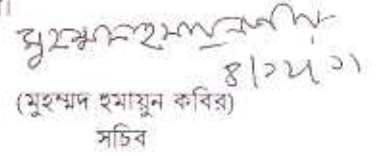 ৪/১২/২১
(মুহম্মদ হুমায়ুন কবির)
সচিব